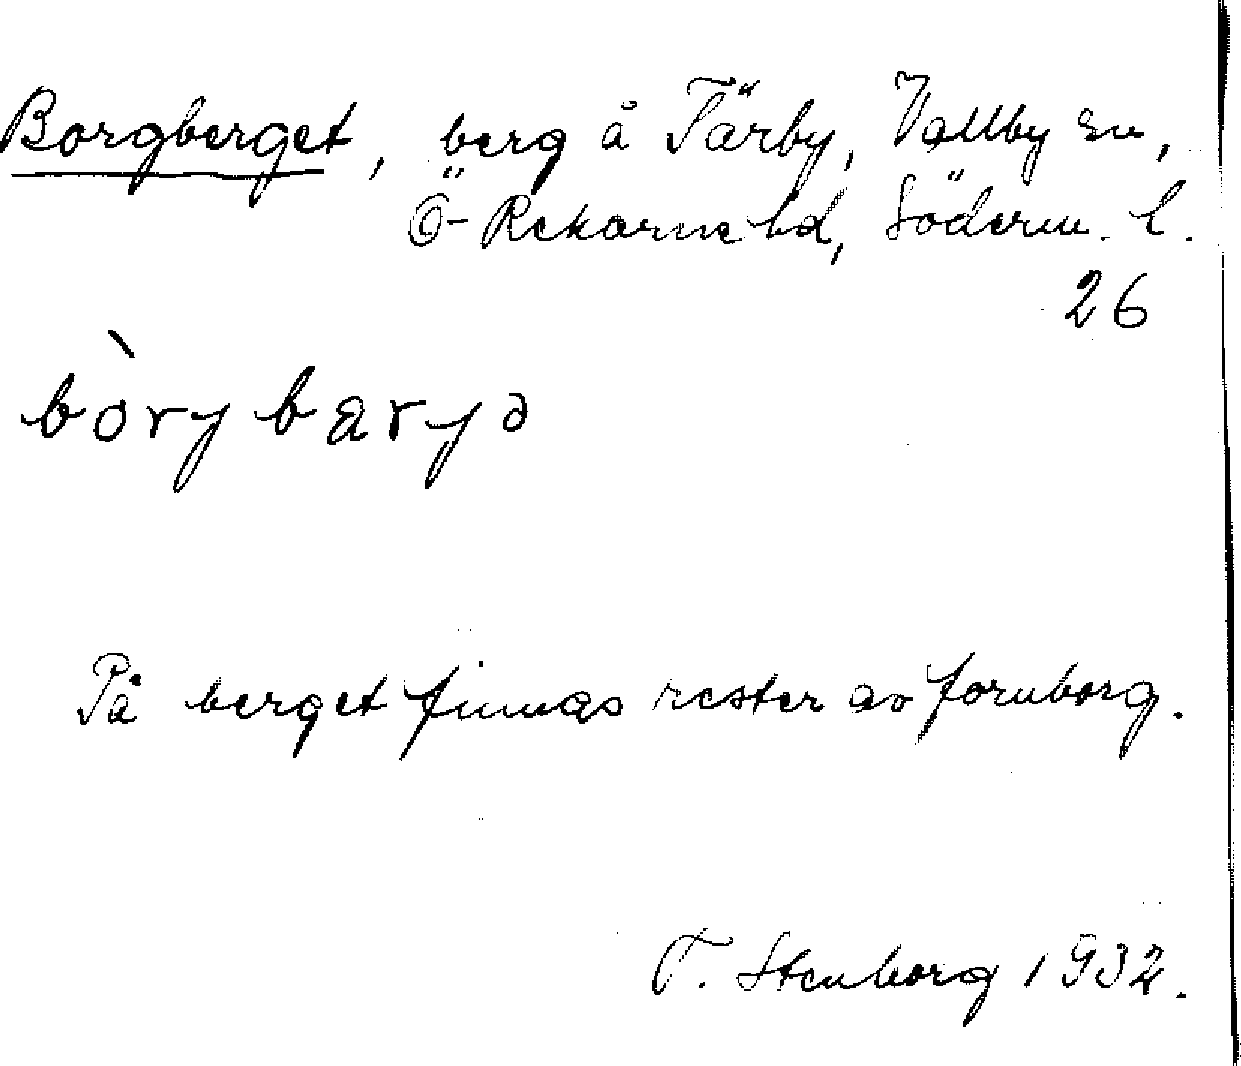 Borgberget, berg å Färby, Vallby sn,
Ö-Rekarne hd, Söderm. l.
26
bòrjbarjə
På berget finnas rester av fornborg.
F. Stenborg 1932.